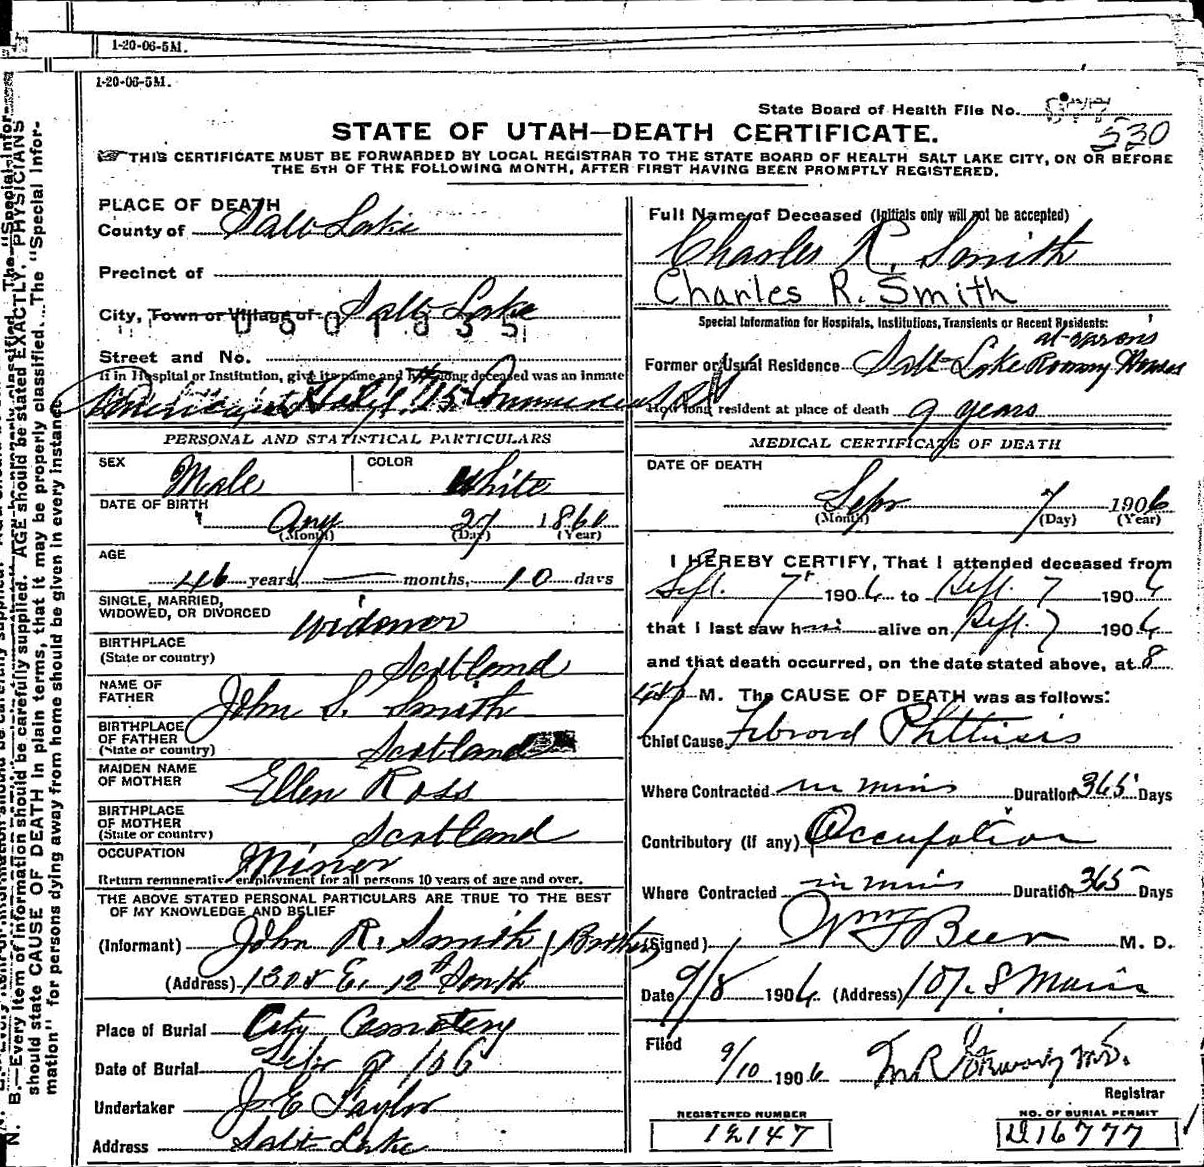 1-20-06-5M.
1-20-06-5M.
State Board of Health File No.
530
STATE OF UTAH—DEATH CERTIFICATE.
THIS CERTIFICATE MUST BE FORWARDED BY LOCAL REGISTRAR TO THE STATE BOARD OF HEALTH SALT LAKE CITY, ON OR BEFORE
THE 5TH OF THE FOLLOWING MONTH, AFTER FIRST HAVING BEEN PROMPTLY REGISTERED.
PLACE OF DEATH
County of Salt Lake
Precinct of
City, Town or Village of Salt Lake
Street and No.
If in Hospital or Institution, give its name and how long deceased was an inmate
PERSONAL AND STATISTICAL PARTICULARS
SEX Male COLOR White
DATE OF BIRTH Aug 27 1860
(Month) (Day) (Year)
AGE
46 years, — months, 10 days
SINGLE, MARRIED,
WIDOWED, OR DIVORCED Widower
BIRTHPLACE
(State or country) Scotland
NAME OF
FATHER John S. Smith
BIRTHPLACE
OF FATHER
(State or country) Scotland
MAIDEN NAME
OF MOTHER Ellen Ross
BIRTHPLACE
OF MOTHER
(State or country) Scotland
OCCUPATION Miner
Return remunerative employment for all persons 10 years of age and over.
THE ABOVE STATED PERSONAL PARTICULARS ARE TRUE TO THE BEST
OF MY KNOWLEDGE AND BELIEF
(Informant) John R. Smith (Brother)
(Address) E. 12th South
Place of Burial City Cemetery
Date of Burial
Undertaker J E Taylor
Address Salt Lake
Full Name of Deceased (Initials only will not be accepted)
Charles R. Smith
Charles R. Smith
Special Information for Hospitals, Institutions, Transients or Recent Residents:
Former or Usual Residence Salt Lake
How long resident at place of death 9 years
MEDICAL CERTIFICATE OF DEATH
DATE OF DEATH
Sept 7 1906
(Month) (Day) (Year)
I HEREBY CERTIFY, That I attended deceased from
Sept. 7 1906 to Sept. 7 1906
that I last saw him alive on Sept. 7 1906
and that death occurred, on the date stated above, at 8
M. The CAUSE OF DEATH was as follows:
Chief Cause Fibroid Phthisis
Where Contracted in mines Duration 365 Days
Contributory (if any) Occupation
Where Contracted in mines Duration 365 Days
(Signed) Wm F Beer M. D.
Date 9/8 1906 (Address) 107. S Main
Filed
9/10 1906 M.D.
Registrar
REGISTERED NUMBER
12147
NO. OF BURIAL PERMIT
D16777
N. B.—Every item of information should be carefully supplied. AGE should be stated EXACTLY. PHYSICIANS
should state CAUSE OF DEATH in plain terms, that it may be properly classified. The "Special Infor-
mation" for persons dying away from home should be given in every instance.